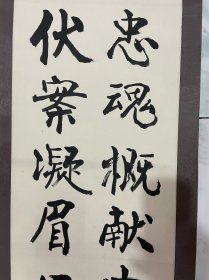 忠魂慨献
伏案凝眉